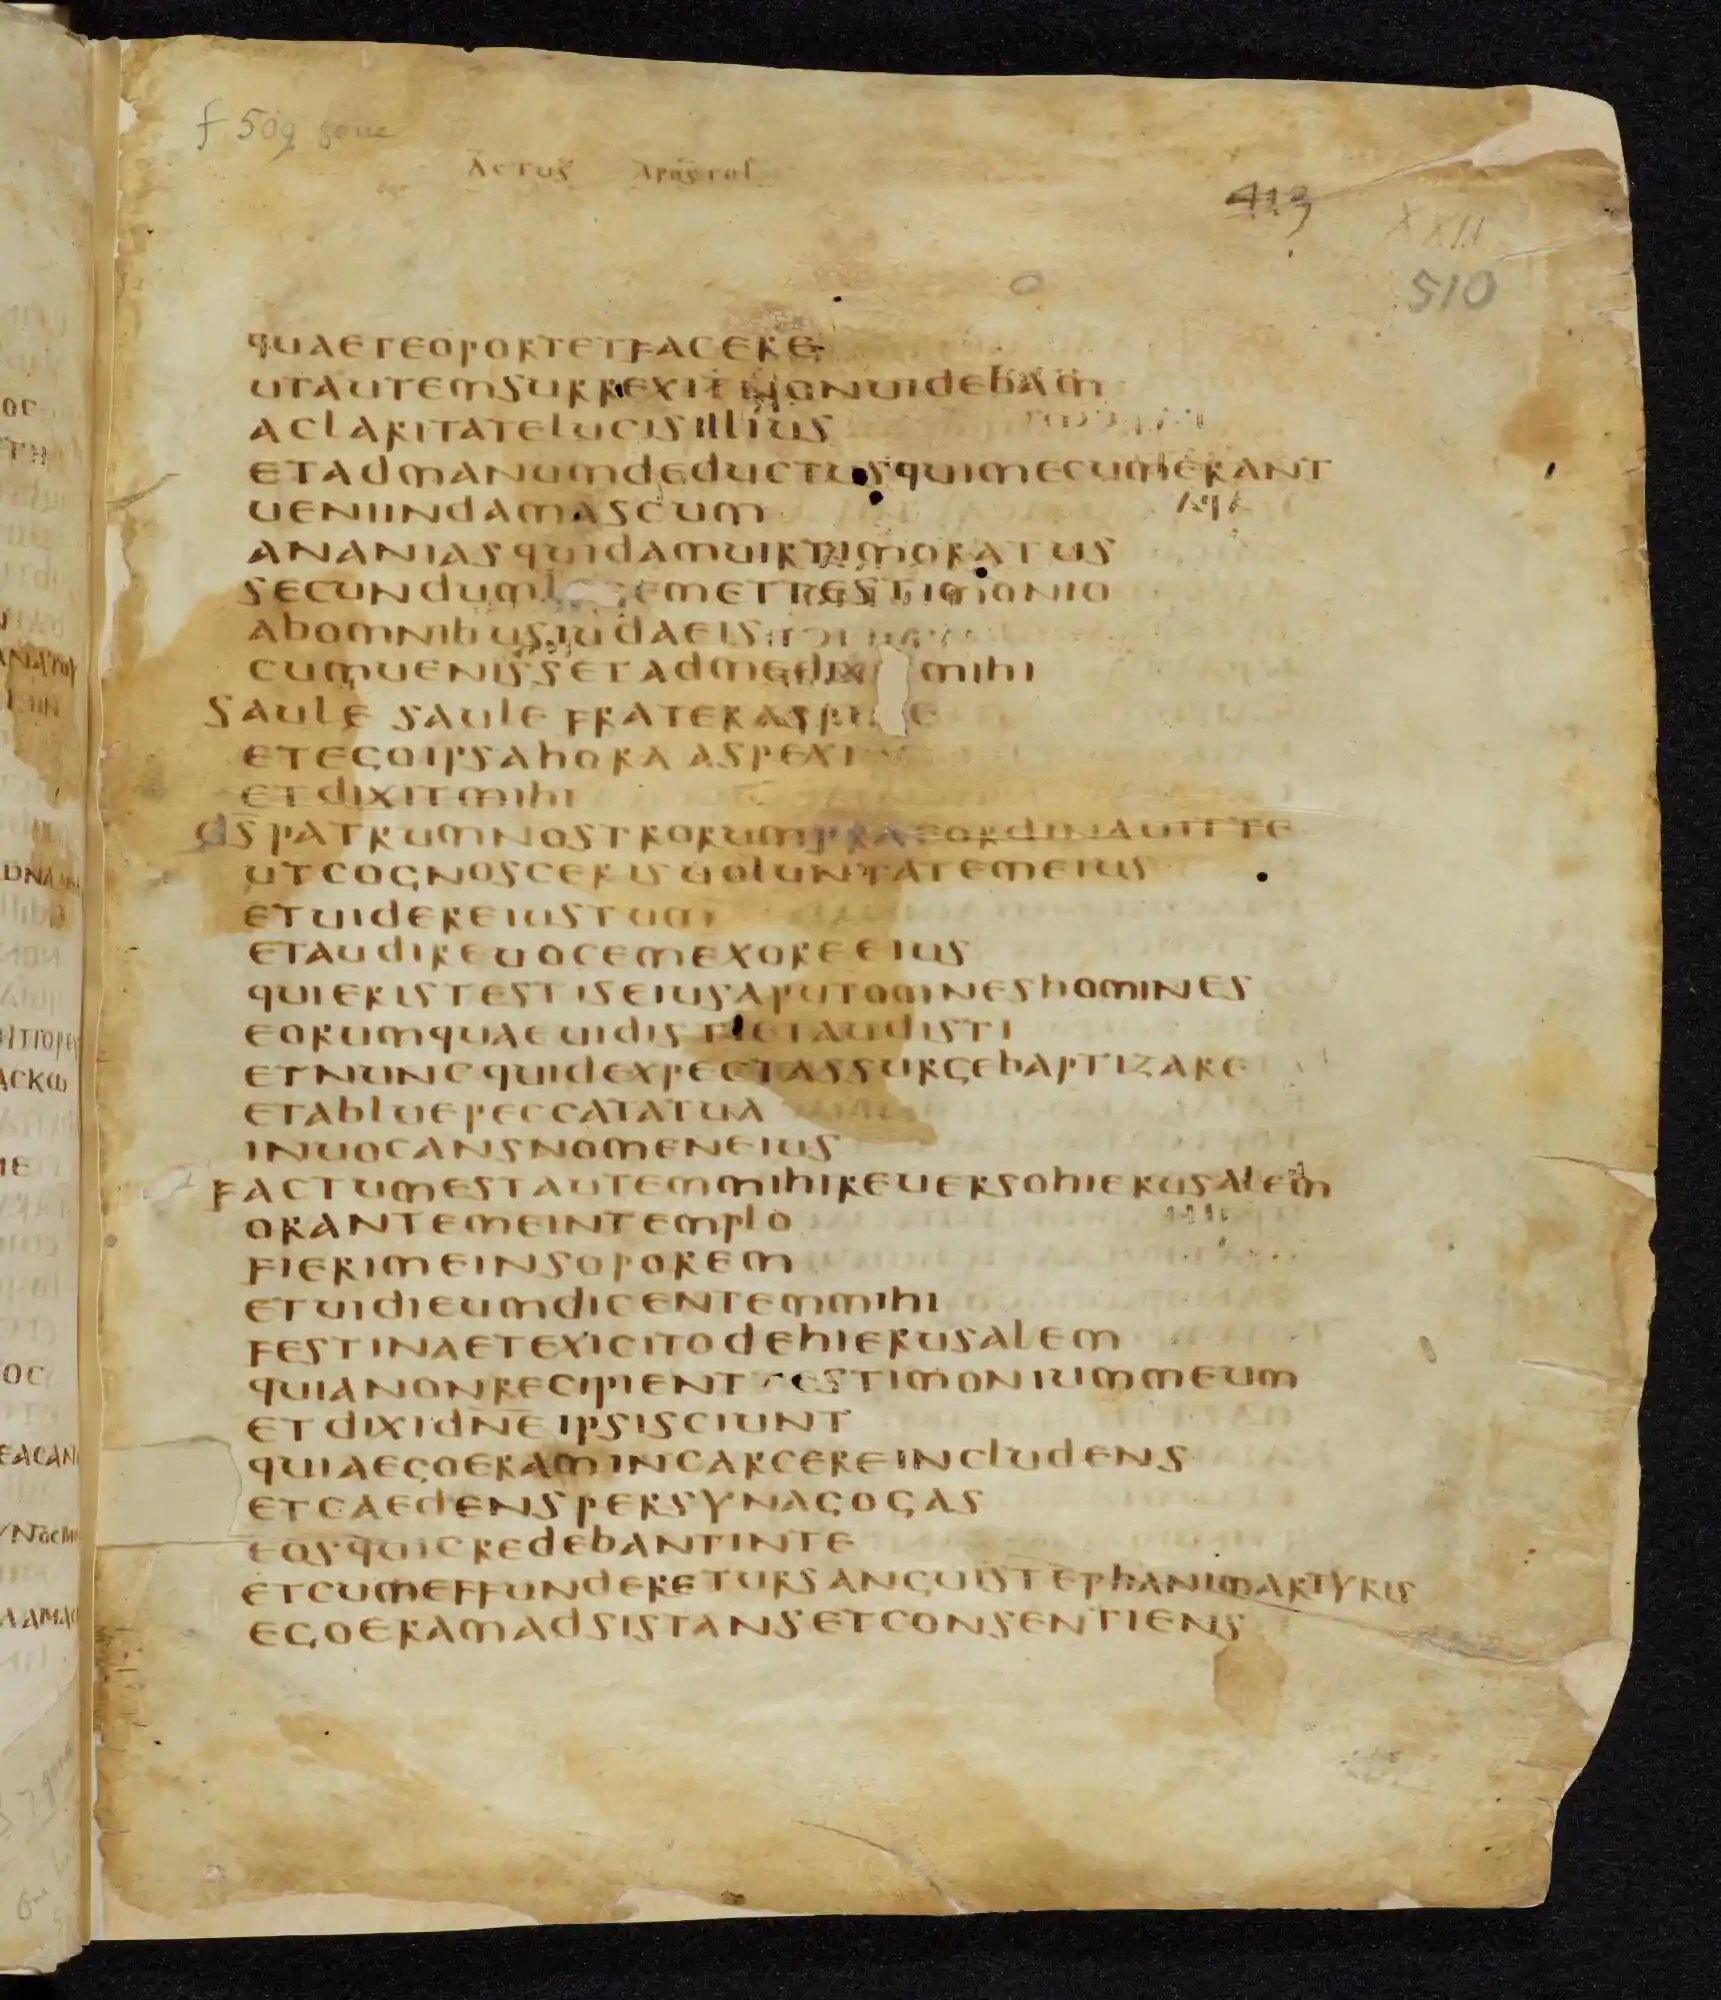 f 509 gone
ACTUS APOSTOL
413
XXII
510
QUAETEOPORTETFACERE
UTAUTEMSURREXINONUIDEBAM
ACLARITATELUCISILLIUS
ETADMANUMDEDUCTUSQUIMECUMERANT
UENIINDAMASCUM
ANANIASQUIDAMUIRTIMORATUS
SECUNDUM EMETTESTIMONIO
ABOMNIBUSIUDAEIS
CUMUENISSETADMEDIX MIHI
SAULE SAULE FRATERASPI E
ETEGOIPSAHORA ASPEXI
ETDIXITMIHI
DSPATRUMNOSTRORUMPRAEORDINAUITTE
UTCOGNOSCERISUOLUNTATEMEIUS
ETUIDEREIUSTUM
ETAUDIREUOCEMEXOREEIUS
QUIERISTESTISEIUSAPUTOMNESHOMINES
EORUMQUAEUIDISTIETAUDISTI
ETNUNCQUIDEXPECTASSURGEBAPTIZARE
ETABLUEPECCATATUA
INUOCANSNOMENEIUS
FACTUMESTAUTEMMIHIREUERSOHIERUSALEM
ORANTEMEINTEMPLO
FIERIMEINSOPOREM
ETUIDIEUMDICENTEMMIHI
FESTINAETEXICITODEHIERUSALEM
QUIANONRECIPIENT TESTIMONIUMMEUM
ETDIXIDNE IPSISCIUNT
QUIAEGOERAMINCARCEREINCLUDENS
ETCAEDENSPERSYNAGOGAS
EOSQUICREDEBANTINTE
ETCUMEFFUNDERETURSANGUISTEPHANIMARTYRIS
EGOERAMADSISTANSETCONSENTIENS